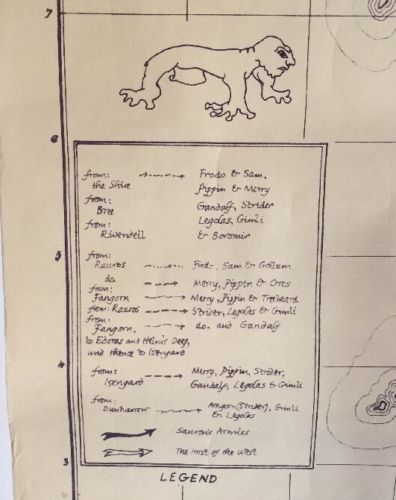 7
6
from: Frodo & Sam,
the Shire Pippin & Merry
from: Gandalf, Strider
Bree Legolas, Gimli
from: & Boromir
Rivendell
5
from:
Rauros Frodo, Sam & Gollum
do. Merry, Pippin & Orcs
from:
Fangorn Merry, Pippin & Treebeard
from: Rauros Strider, Legolas & Gimli
from:
Fangorn, do. and Gandalf
to Edoras and Helm's Deep,
and thence to Isengard
4
from: Merry, Pippin, Strider,
Isengard Gandalf, Legolas & Gimli
from:
Dunharrow Aragorn (Strider), Gimli
& Legolas
Sauron's Armies
The Host of the West
3
LEGEND